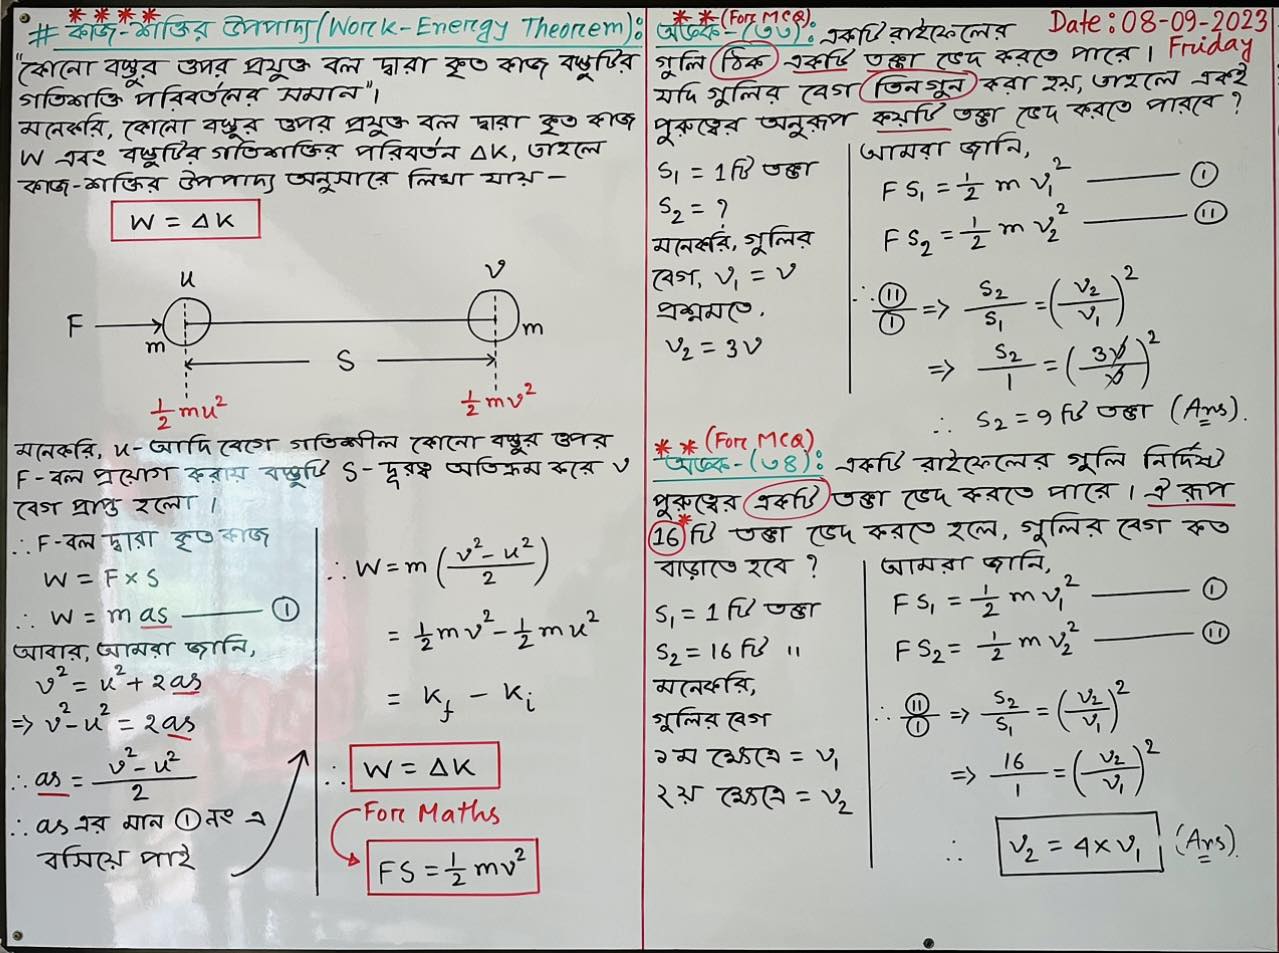 ****
# কাজ-শক্তির উপপাদ্য (Work-Energy Theorem):
"কোনো বস্তুর ওপর প্রযুক্ত বল দ্বারা কৃত কাজ বস্তুটির
গতিশক্তি পরিবর্তনের সমান"।
মনেকরি, কোনো বস্তুর ওপর প্রযুক্ত বল দ্বারা কৃত কাজ
W এবং বস্তুটির গতিশক্তির পরিবর্তন ΔK, তাহলে
কাজ-শক্তির উপপাদ্য অনুসারে লিখা যায় –
W = ΔK
u v
F m m
S
½mu² ½mv²
মনেকরি, u- আদি বেগে গতিশীল কোনো বস্তুর ওপর
F-বল প্রয়োগ করায় বস্তুটি S-দূরত্ব অতিক্রম করে v
বেগ প্রাপ্ত হলো।
∴ F-বল দ্বারা কৃত কাজ
W = F×S
∴ W = mas ——— ①
আবার, আমরা জানি,
v² = u² + 2as
=> v² - u² = 2as
∴ as = (v² - u²)/2
∴ as এর মান ① নং এ
বসিয়ে পাই
∴ W = m((v² - u²)/2)
= ½mv² - ½mu²
= K_f - K_i
∴ W = ΔK
For Maths
FS = ½mv²
Date: 08-09-2023
Friday
** (For MCQ)
অংক-(৩৩): একটি রাইফেলের
গুলি ঠিক একটি তক্তা ভেদ করতে পারে।
যদি গুলির বেগ তিনগুন করা হয়, তাহলে একই
পুরুত্বের অনুরূপ কয়টি তক্তা ভেদ করতে পারবে?
S₁ = 1 টি তক্তা
S₂ = ?
মনেকরি, গুলির
বেগ, v₁ = v
প্রশ্নমতে,
v₂ = 3v
আমরা জানি,
FS₁ = ½ m v₁² ——— ①
FS₂ = ½ m v₂² ——— ⑪
∴ ⑪/① => S₂/S₁ = (v₂/v₁)²
=> S₂/1 = (3v/v)²
∴ S₂ = 9 টি তক্তা (Ans).
** (For MCQ)
অংক-(৩৪): একটি রাইফেলের গুলি নির্দিষ্ট
পুরুত্বের একটি তক্তা ভেদ করতে পারে। ঐ রূপ
16* টি তক্তা ভেদ করতে হলে, গুলির বেগ কত
বাড়াতে হবে?
S₁ = 1 টি তক্তা
S₂ = 16 টি "
মনেকরি,
গুলির বেগ
১ম ক্ষেত্রে = v₁
২য় ক্ষেত্রে = v₂
আমরা জানি,
FS₁ = ½ m v₁² ——— ①
FS₂ = ½ m v₂² ——— ⑪
∴ ⑪/① => S₂/S₁ = (v₂/v₁)²
=> 16/1 = (v₂/v₁)²
∴ v₂ = 4×v₁ (Ans).